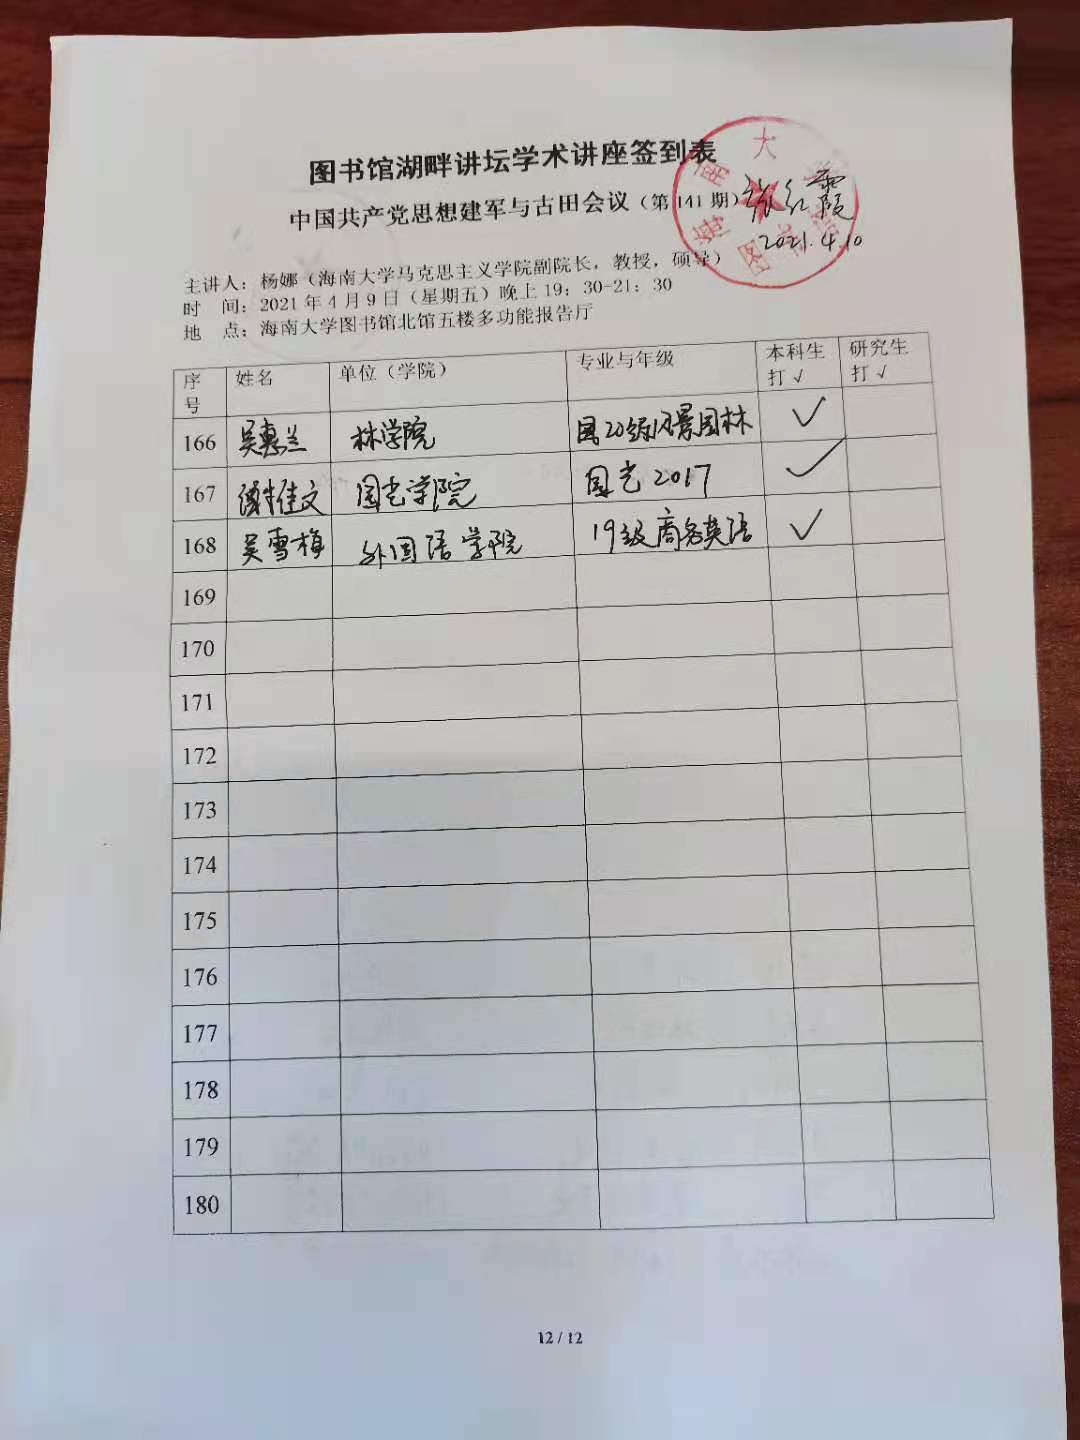 图书馆湖畔讲坛学术讲座签到表
中国共产党思想建军与古田会议（第141期）
海南大学
图书馆
张红霞
2021.4.10
主讲人：杨娜（海南大学马克思主义学院副院长，教授，硕导）
时　间：2021年4月9日（星期五）晚上19：30-21：30
地　点：海南大学图书馆北馆五楼多功能报告厅
序号 姓名 单位（学院） 专业与年级 本科生打√ 研究生打√
166 吴惠兰 林学院 20级风景园林 ✓
167 谢佳文 园艺学院 园艺2017 ✓
168 吴雪梅 外国语学院 19级商务英语 ✓
169
170
171
172
173
174
175
176
177
178
179
180
12 / 12